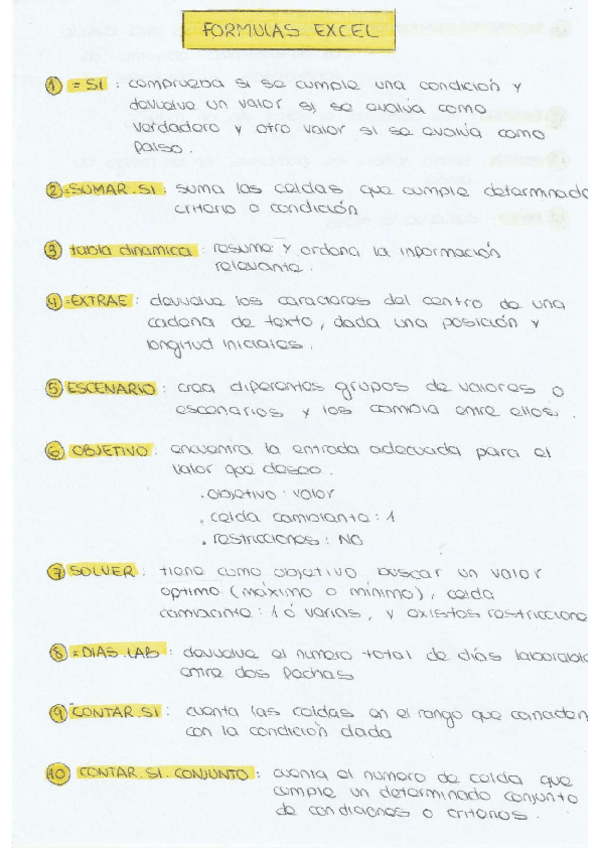 FORMULAS EXCEL
1 =SI : comprueba si se cumple una condición y
devuelve un valor si se evalúa como
verdadero y otro valor si se evalúa como
falso.
2 =SUMAR.SI : suma las celdas que cumple determinado
criterio o condición
3 tabla dinamica : resume y ordena la información
relevante.
4 =EXTRAE : devuelve los caracteres del centro de una
cadena de texto, dada una posición y
longitud iniciales.
5 ESCENARIO : crea diferentes grupos de valores o
escenarios y los cambia entre ellos.
6 OBJETIVO : encuentra la entrada adecuada para el
valor que deseo.
. objetivo : valor
. celda cambiante : 1
. restricciones : NO
7 SOLVER : tiene como objetivo buscar un valor
optimo (máximo o mínimo), celda
cambiante : 1 ó varias, y existos restriccione
8 =DIAS.LAB : devuelve el numero total de días laborable
entre dos fechas
9 CONTAR.SI : cuenta las celdas en el rango que
con la condición dada
10 CONTAR.SI.CONJUNTO : cuenta el numero de celda que
cumple un determinado conjunto
de condiciones o criterios.